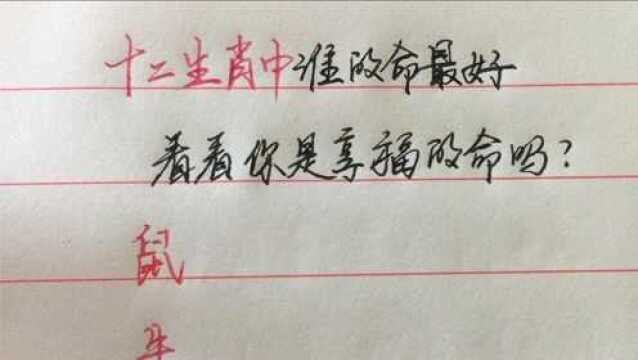 十二生肖中谁的命最好
看看你是享福的命吗？
鼠
牛